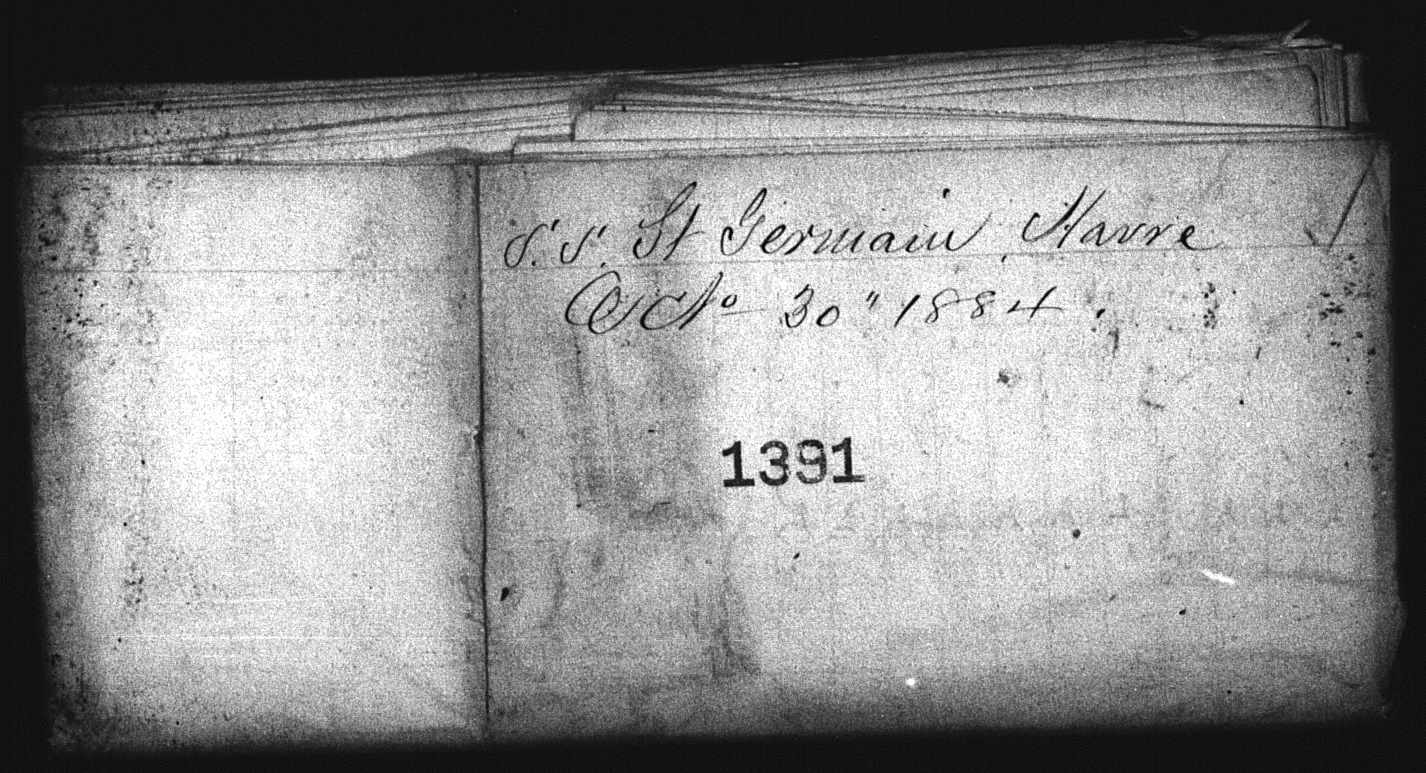 S. S. St Germain, Havre
Octo 30" 1884.
1391